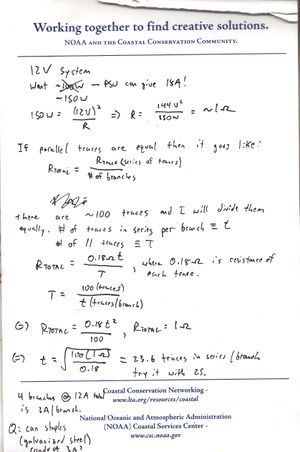 Working together to find creative solutions.
NOAA AND THE COASTAL CONSERVATION COMMUNITY.
12V System
Want ~100W — PSU can give 18A!
~150W
150W = (12V)² / R => R = 144V² / 150W = ~1Ω
If parallel traces are equal then it goes like:
R_TOTAL = R_TRACE (series of traces) / # of branches
There are ~100 traces and I will divide them
equally. # of traces in series per branch ≡ t
# of || traces ≡ T
R_TOTAL = 0.18Ω t / T, where 0.18Ω is resistance of
each trace.
T = 100 (traces) / t (traces/branch)
(=) R_TOTAL = 0.18 t² / 100, R_TOTAL = 1Ω
(=) t = √(100(1Ω) / 0.18) = 23.6 traces in series/branch
try it with 25.
4 branches @ 12A total
is 3A/branch.
Coastal Conservation Networking -
www.lta.org/resources/coastal
National Oceanic and Atmospheric Administration
(NOAA) Coastal Services Center -
www.csc.noaa.gov
Q: can staples
(galvanized steel)
3A?